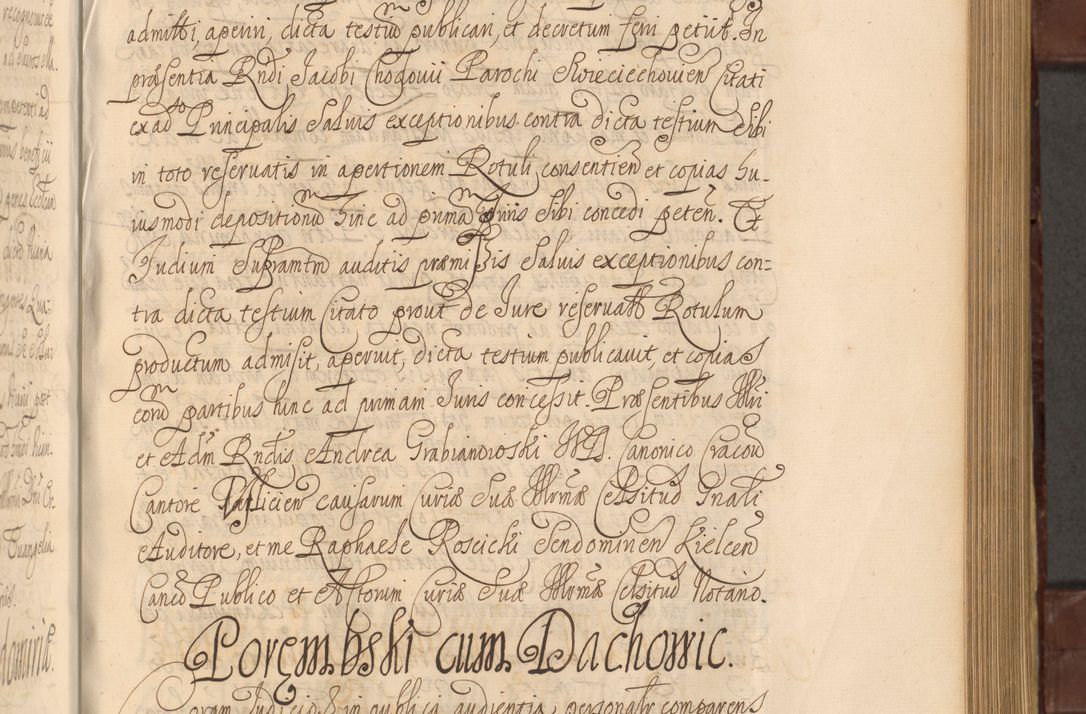 admitti, aperiri, dicta testiu publicari, et decretum feri petiit. In
præsentia Rndi Jacobi Chodowii Parochi Swieciechovien Citati
ex ad Principalis Salvis exceptionibus contra dicta testium Sibi
in toto reservatis in apertionem Rotuli consentien et copias hu-
iusmodi depositionu hinc ad prima Juris Sibi concedi peten. Et
Judium Supramtm auditis præmissis Salvis exceptionibus con=
tra dicta testium Citato prout de Jure reservatis Rotulum
productum admisit, aperuit, dicta testium publicavit, et copias
eoru partibus hinc ad primam Juris concessit. Præsentibus Illri
et Adm Rndis Andrea Grabianowski JUD. Canonico Cracov
Cantore causarum Curiæ Suæ Illrmæ Celsitud Gnali
Auditore, et me Raphaele Roscicki Sendomirien Kielcen
Canco Publico et Actorum Curiæ Suæ Illrmæ Celsitud Notario.
Porembski cum Dachowic.
Coram Judicio & in publica audientia, personalr comparens